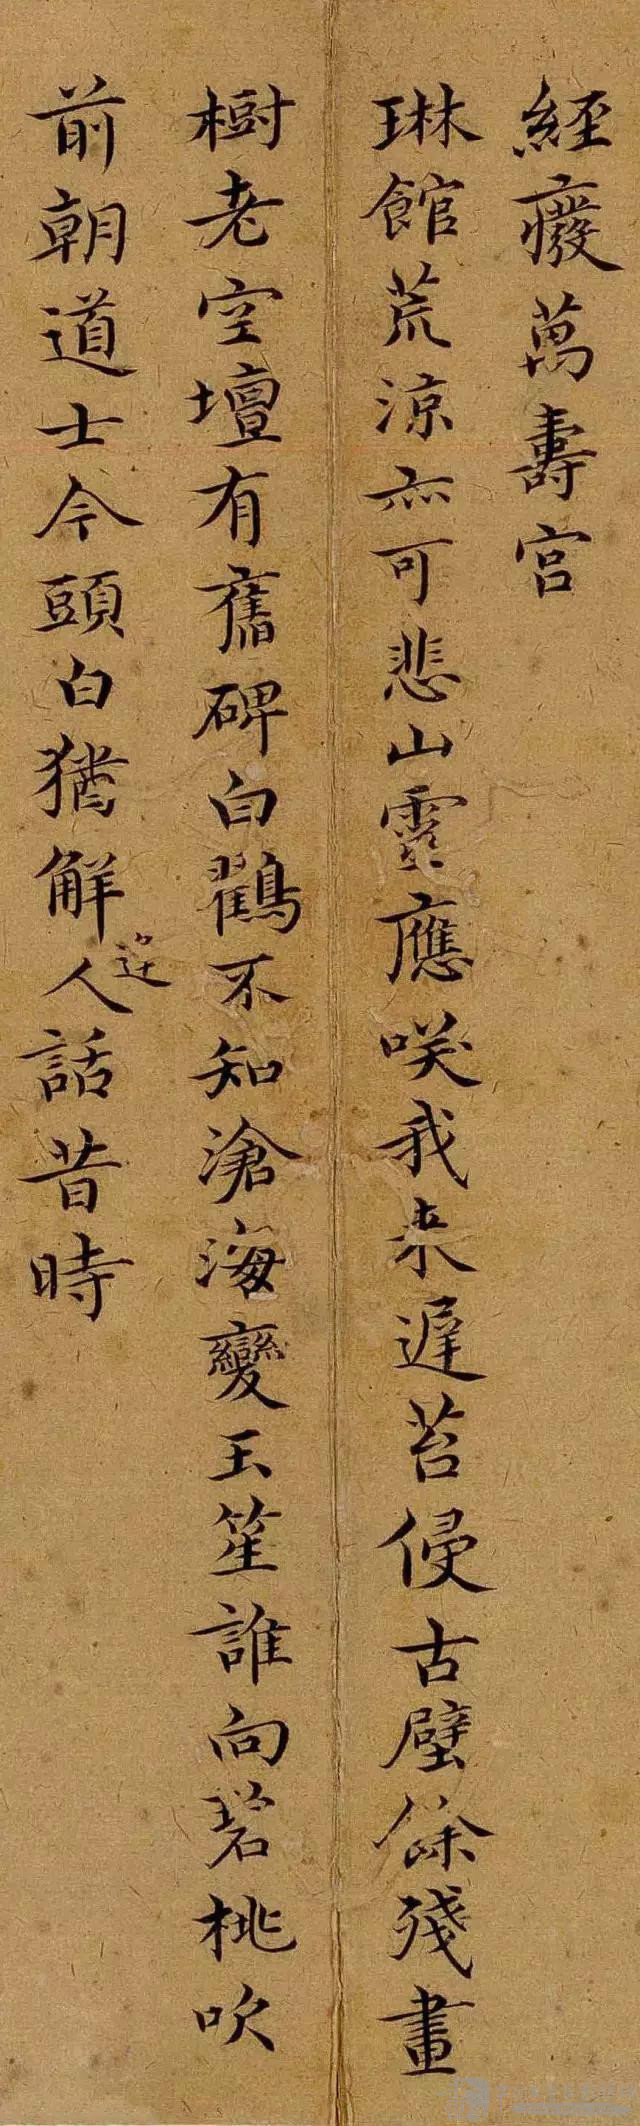 經癈萬壽宮
琳館荒凉亦可悲山靈應咲我来遲苔侵古壁餘殘畫
樹老空壇有舊碑白鶴不知滄海變玉笙誰向碧桃吹
前朝道士今頭白猶解人話昔時
迎